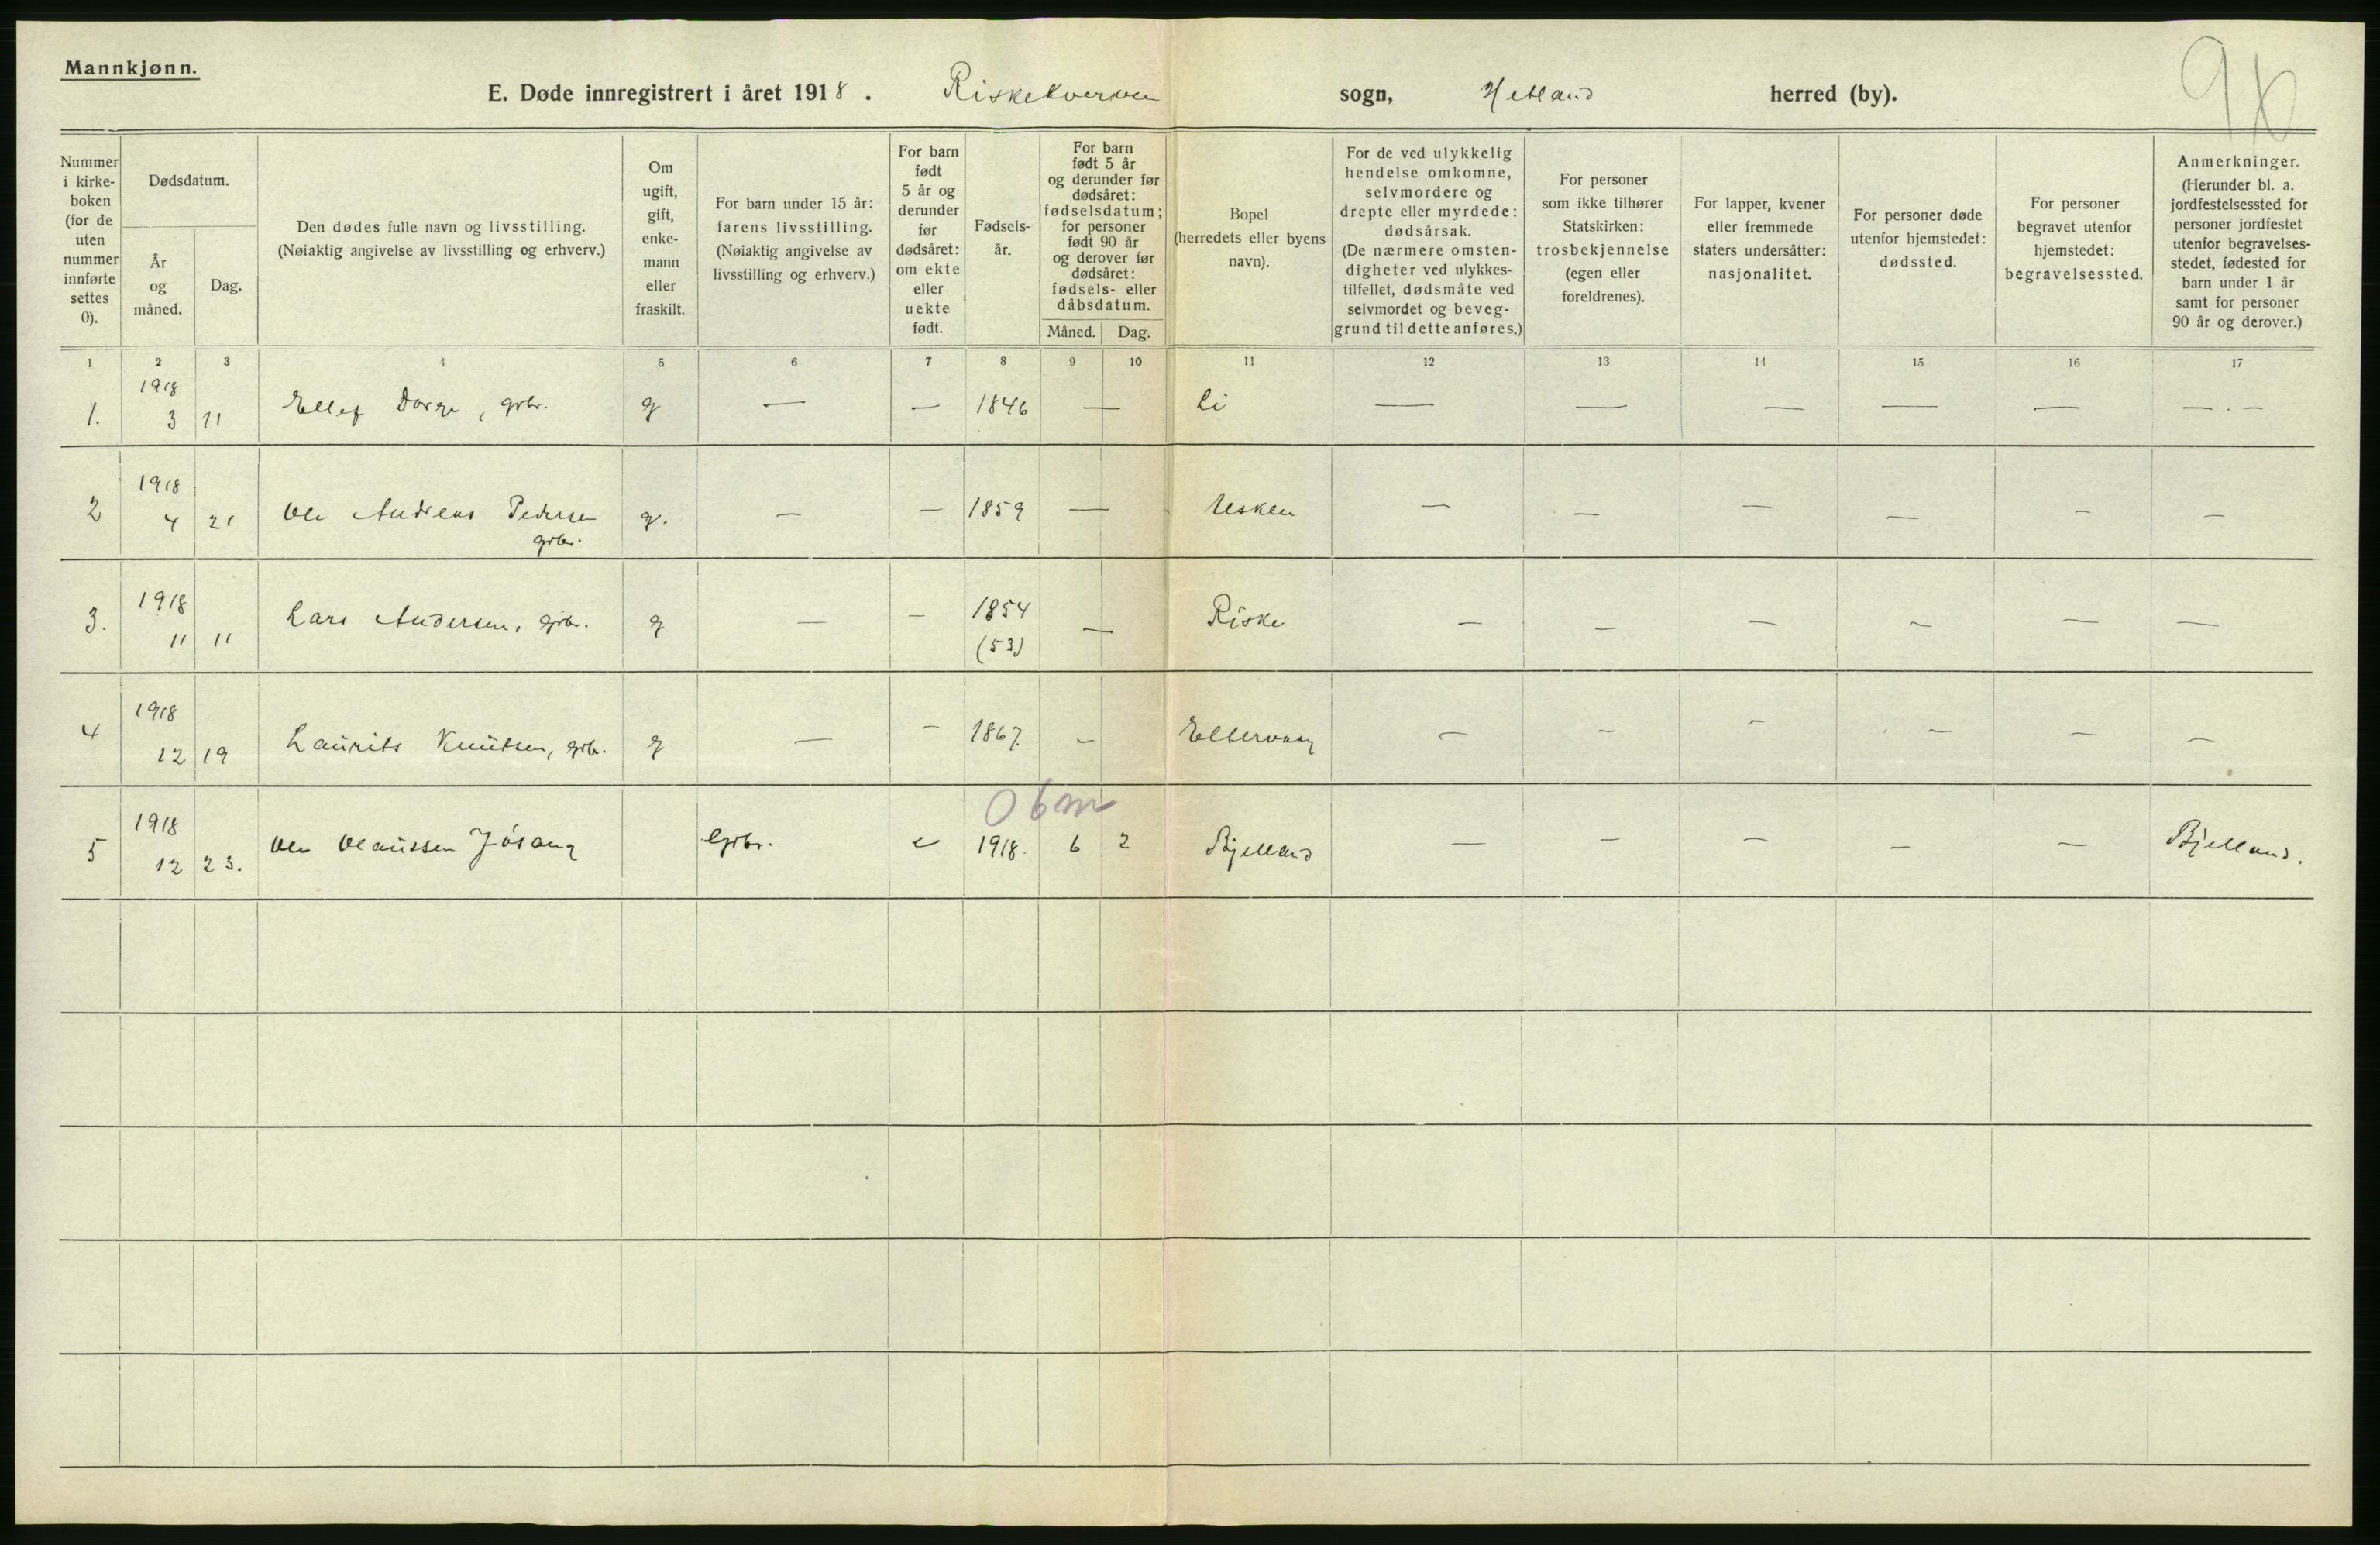 Mannkjønn.
E. Døde innregistrert i året 1918. Riskekverven sogn, Hetland herred (by).
Nummer i kirke-boken (for de uten nummer innførte settes 0).
Dødsdatum.
År og måned.
Dag.
Den dødes fulle navn og livsstilling.
(Nøiaktig angivelse av livsstilling og erhverv.)
Om ugift, gift, enke-mann eller fraskilt.
For barn under 15 år: farens livsstilling.
(Nøiaktig angivelse av livsstilling og erhverv.)
For barn født 5 år og derunder før dødsåret: om ekte eller uekte født.
Fødsels-år.
For barn født 5 år og derunder før dødsåret: fødselsdatum; for personer født 90 år og derover før dødsåret: fødsels- eller dåbsdatum.
Måned. Dag.
Bopel (herredets eller byens navn).
For de ved ulykkelig hendelse omkomne, selvmordere og drepte eller myrdede: dødsårsak.
(De nærmere omsten-digheter ved ulykkes-tilfellet, dødsmåte ved selvmordet og beveg-grund til dette anføres.)
For personer som ikke tilhører Statskirken: trosbekjennelse (egen eller foreldrenes).
For lapper, kvener eller fremmede staters undersåtter: nasjonalitet.
For personer døde utenfor hjemstedet: dødssted.
For personer begravet utenfor hjemstedet: begravelsessted.
Anmerkninger.
(Herunder bl. a. jordfestelsessted for personer jordfestet utenfor begravelses-stedet, fødested for barn under 1 år samt for personer 90 år og derover.)
1 2 3 4 5 6 7 8 9 10 11 12 13 14 15 16 17
1. 1918 3 11 Ellef Dorge, grbr. g — — 1846 — Li — — — — — — . —
2 1918 4 21 Ole Andreas Pedersen grbr. g. — — 1859 — Usken — — — — — —
3. 1918 11 11 Lars Andersen, grbr. g — — 1854 (53) — Riske — — — — — —
4 1918 12 19 Laurits Knutsen, grbr. g — — 1867. — Eltervaag — — — — — —
0 6m
5 1918 12 23. Ole Olaussen Jösang Grbr. e 1918. 6 2 Bjelland — — — — — Bjelland.